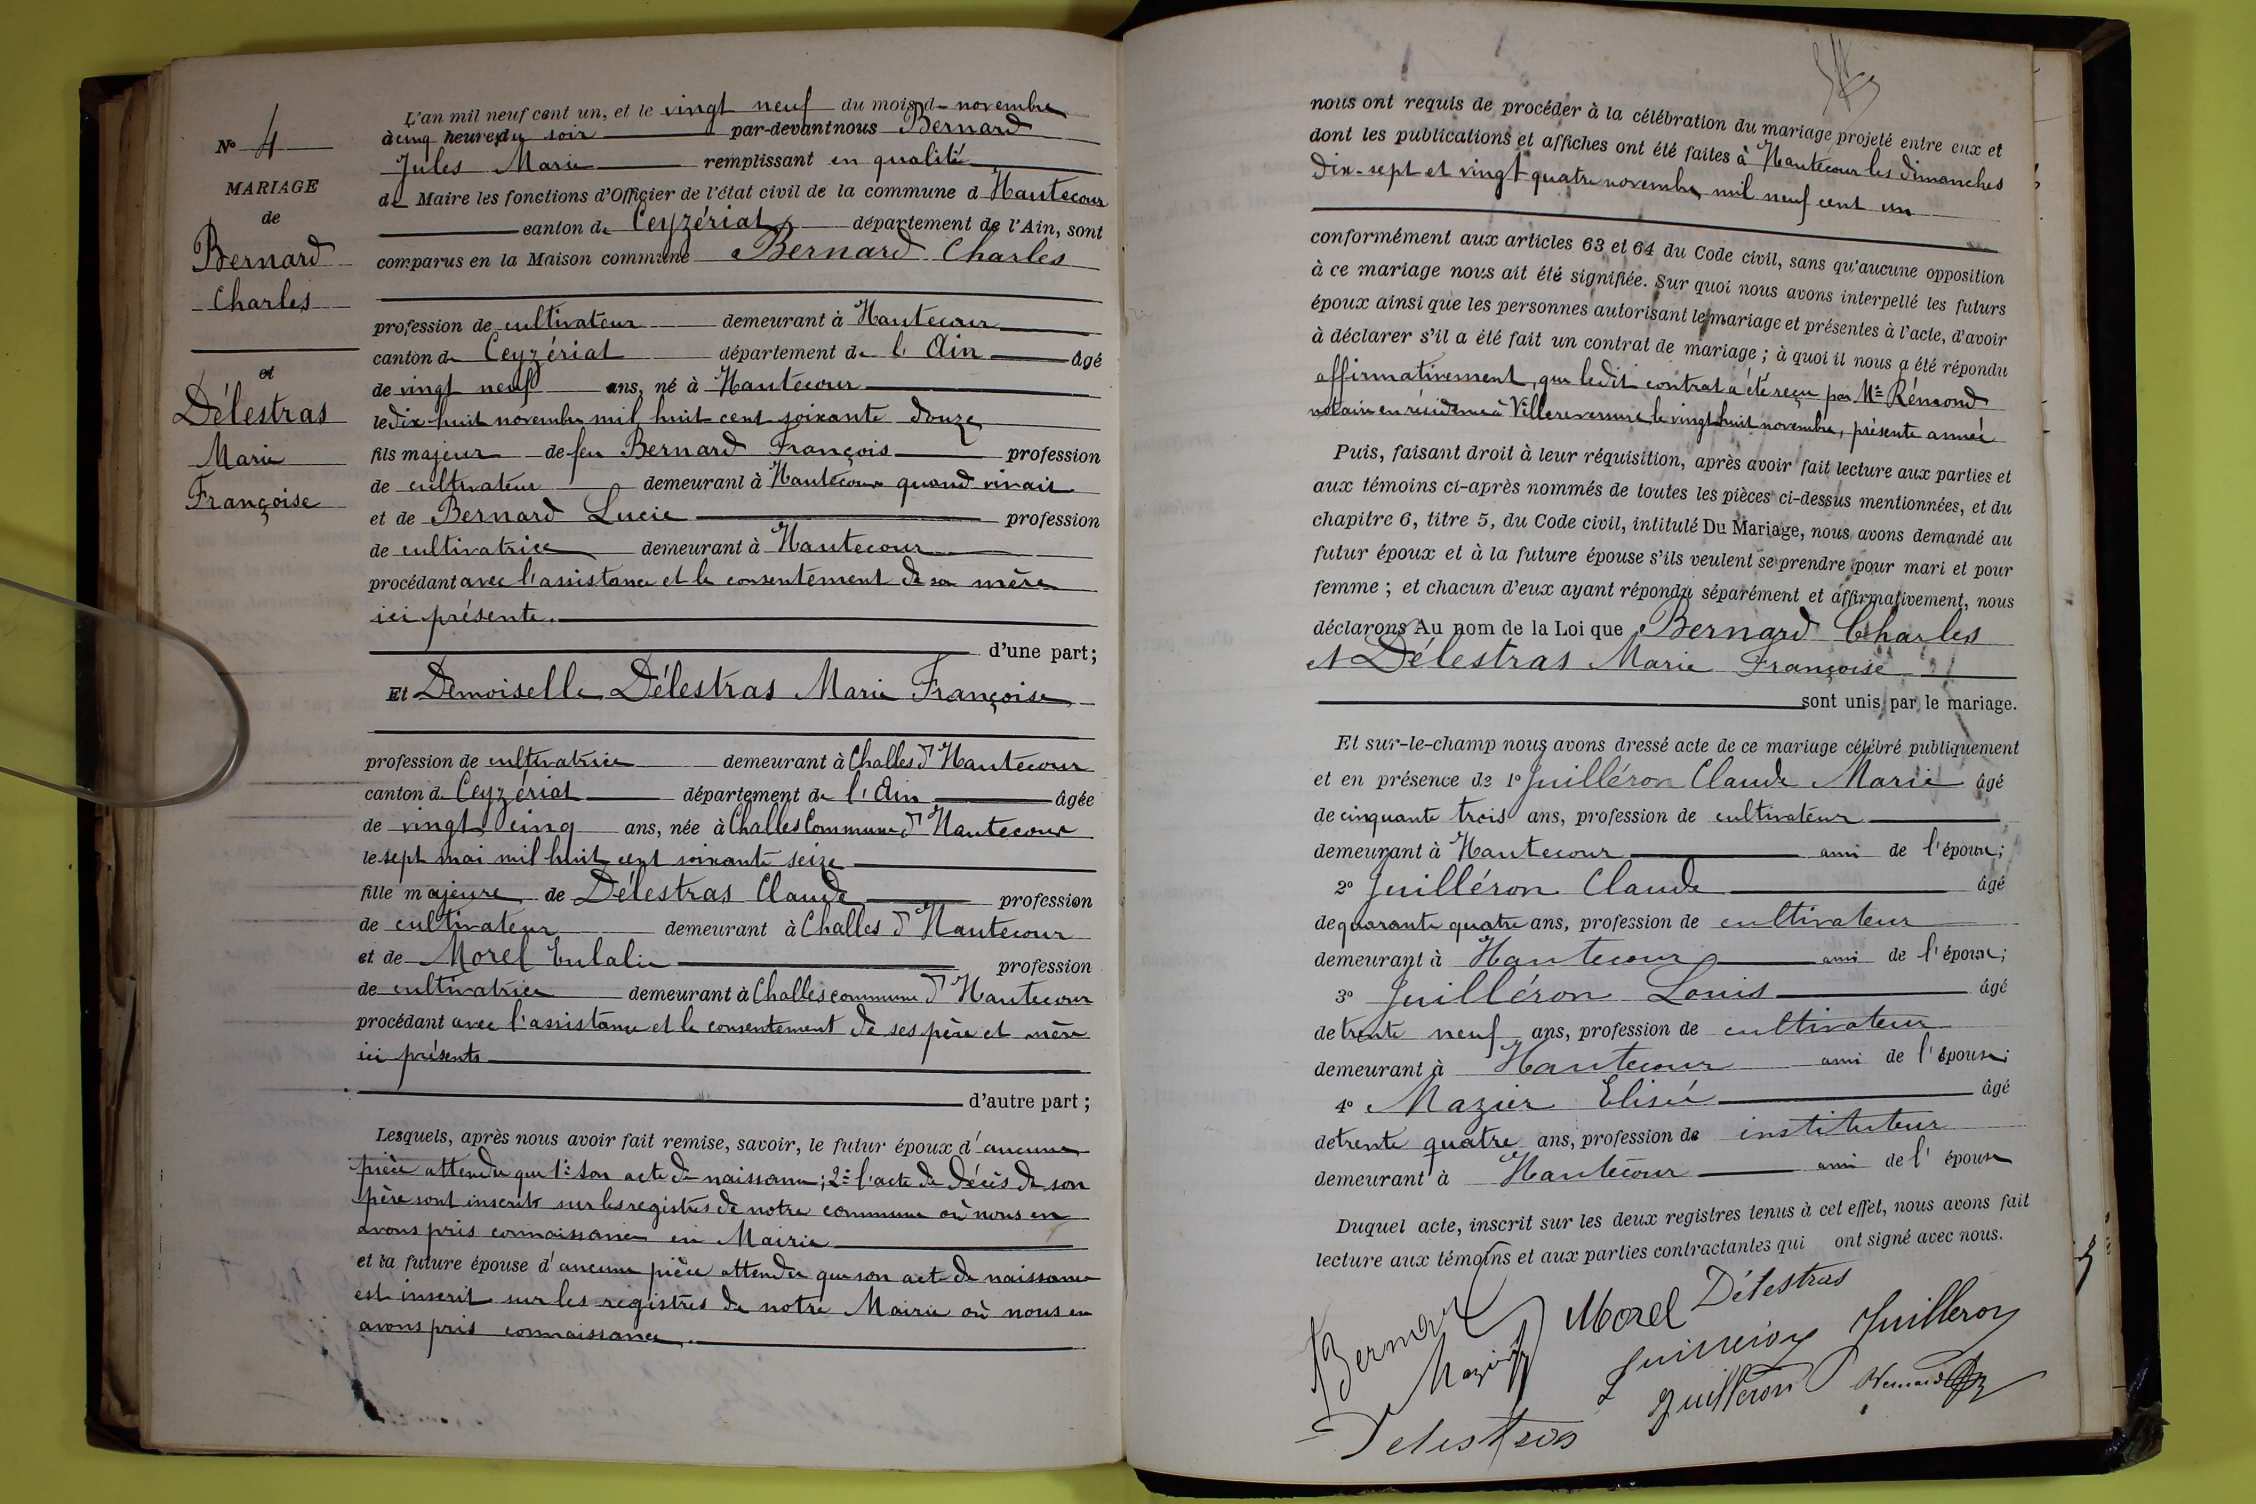 N° 4
MARIAGE
de
Bernard
Charles
et
Délestras
Marie
Françoise
L'an mil neuf cent un, et le vingt neuf du mois de novembre
à cinq heures du soir par-devant nous Bernard
Jules Marie remplissant en qualité
de Maire les fonctions d'Officier de l'état civil de la commune d Hautecour
canton de Ceyzériat département de l'Ain, sont
comparus en la Maison commune Bernard Charles
profession de cultivateur demeurant à Hautecour
canton de Ceyzériat département de l'Ain âgé
de vingt neuf ans, né à Hautecour
le dix huit novembre mil huit cent soixante douze
fils majeur de feu Bernard François profession
de cultivateur demeurant à Hautecour quand vivait
et de Bernard Lucie profession
de cultivatrice demeurant à Hautecour
procédant avec l'assistance et le consentement de sa mère
ici présente.
d'une part;
Et Demoiselle Délestras Marie Françoise
profession de cultivatrice demeurant à Challes d'Hautecour
canton de Ceyzériat département de l'Ain âgée
de vingt cinq ans, née à Challes Commune d'Hautecour
le sept mai mil huit cent soixante seize
fille majeure de Délestras Claude profession
de cultivateur demeurant à Challes d'Hautecour
et de Morel Eulalie profession
de cultivatrice demeurant à Challes commune d'Hautecour
procédant avec l'assistance et le consentement de ses père et mère
ici présents
d'autre part;
Lesquels, après nous avoir fait remise, savoir, le futur époux d'aucune
pièce attendu que 1° son acte de naissance; 2° l'acte de décès de son
père sont inscrits sur les registres de notre commune où nous en
avons pris connaissance en Mairie
et la future épouse d'aucune pièce attendu que son acte de naissance
est inscrit sur les registres de notre Mairie où nous en
avons pris connaissance.
nous ont requis de procéder à la célébration du mariage projeté entre eux et
dont les publications et affiches ont été faites à Hautecour les dimanches
dix-sept et vingt quatre novembre mil neuf cent un
conformément aux articles 63 et 64 du Code civil, sans qu'aucune opposition
à ce mariage nous ait été signifiée. Sur quoi nous avons interpellé les futurs
époux ainsi que les personnes autorisant le mariage et présentes à l'acte, d'avoir
à déclarer s'il a été fait un contrat de mariage; à quoi il nous a été répondu
affirmativement, que ledit contrat a été reçu par Me Rémond
notaire en résidence à Villereversure, le vingt huit novembre, présente année
Puis, faisant droit à leur réquisition, après avoir fait lecture aux parties et
aux témoins ci-après nommés de toutes les pièces ci-dessus mentionnées, et du
chapitre 6, titre 5, du Code civil, intitulé Du Mariage, nous avons demandé au
futur époux et à la future épouse s'ils veulent se prendre pour mari et pour
femme; et chacun d'eux ayant répondu séparément et affirmativement, nous
déclarons Au nom de la Loi que Bernard Charles
et Délestras Marie Françoise
sont unis par le mariage.
Et sur-le-champ nous avons dressé acte de ce mariage célébré publiquement
et en présence de 1° Juilléron Claude Marie âgé
de cinquante trois ans, profession de cultivateur
demeurant à Hautecour ami de l'épouse;
2° Juilléron Claude âgé
de quarante quatre ans, profession de cultivateur
demeurant à Hautecour ami de l'épouse;
3° Juilléron Louis âgé
de trente neuf ans, profession de cultivateur
demeurant à Hautecour ami de l'épouse;
4° Mazuir Elisée âgé
de trente quatre ans, profession de instituteur
demeurant à Hautecour ami de l'épouse
Duquel acte, inscrit sur les deux registres tenus à cet effet, nous avons fait
lecture aux témoins et aux parties contractantes qui ont signé avec nous.
Bernard Morel Délestras
Juilleron
Juilleron Bernard
Delestras